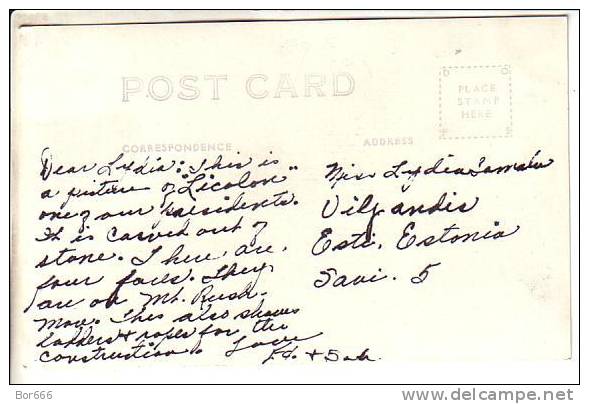 POST CARD
PLACE
STAMP
HERE
CORRESPONDENCE
ADDRESS
Dear Lydia: This is
a picture of "Licolon"
one of our presidents.
It is carved out of
stone. There are
four faces. They
are on Mt. Rush-
more. This also shows
ladders & ropes for the
construction. Love
Ed. +
Miss Lydia
Viljandis
Esti, Estonia
Savi. 5
Bor666
www.delcampe.net